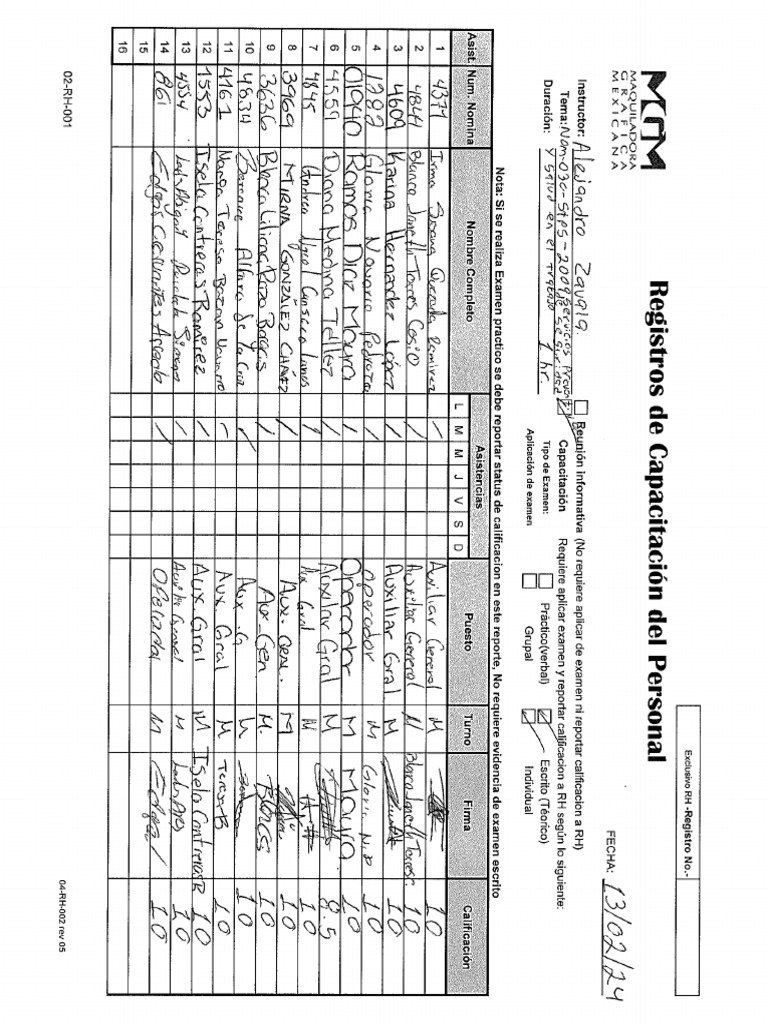 MGM
MAQUILADORA
GRAFICA
MEXICANA
Registros de Capacitación del Personal
Exclusivo RH -Registro No.-
FECHA: 13/02/24
Instructor: Alejandro Zavala.
Tema: Nom-030-Stps-2009 Servicios Prevent. de Seguridad
y salud en el trabajo
Duración: 1 hr.
Reunión informativa (No requiere aplicar de examen ni reportar calificacion a RH)
Capacitación Requiere aplicar examen y reportar calificacion a RH según lo siguiente:
Tipo de Examen: Práctico(verbal) Escrito (Téorico)
Aplicación de examen Grupal Individual
Nota: Si se realiza Examen practico se debe reportar status de calificacion en este reporte, No requiere evidencia de examen escrito
Asist. Num. Nomina Nombre Completo Asistencias Puesto Turno Firma Calificación
L M M J V S D
1 4371 Irma Ramirez / Auxiliar General M 10
2 4844 Blanca Janeth Torres Cosio / Auxiliar General M Blanca Janeth Torres C. 10
3 4609 Karina Hernandez López / Auxiliar Gral M 10
4 1282 Gloria Navarro Pedroza / operador M Gloria N.P 10
5 01940 Ramos Diaz Mayra / Operador M Mayra 10
6 4559 Diana Medina Tellez / Auxiliar Gral M 8.5
7 4845 Andrea / Aux Gral M 10
8 3969 MIRNA GONZÁLEZ CHÁVEZ / Aux. Gen. M 10
9 3636 Blanca Liliana / Aux. Gen M. Blanca 10
10 4834 Berenice Alfaro De La Cruz / Aux. G M 10
11 4161 Teresa Bazan Navarro / Aux Gral M Teresa B 10
12 1553 Isela Contreras Ramirez / Aux Gral M Isela Contreras R 10
13 4554 / Auxiliar General M 10
14 861 Edgar Cervantes / Operador M Edgar 10
15
16
02-RH-001
04-RH-002 rev 05